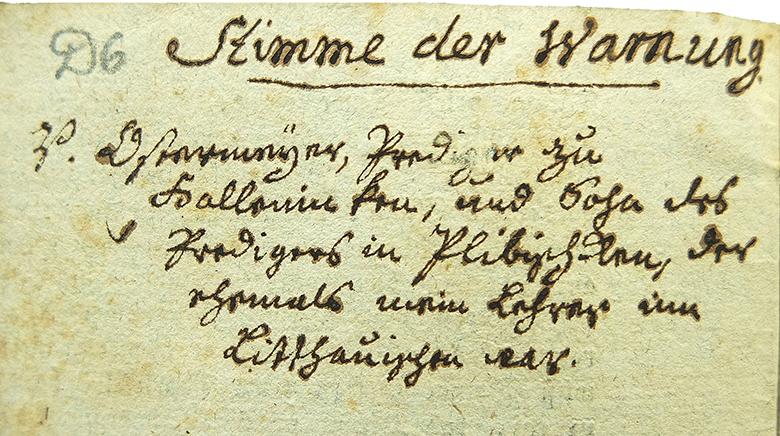 D6 Stimme der Warnung
V. Ostermeyer, Prediger zu
Kalleninken, und Sohn des
Predigers in Plibischken, der
ehemals mein Lehrer im
Litthauischen war.